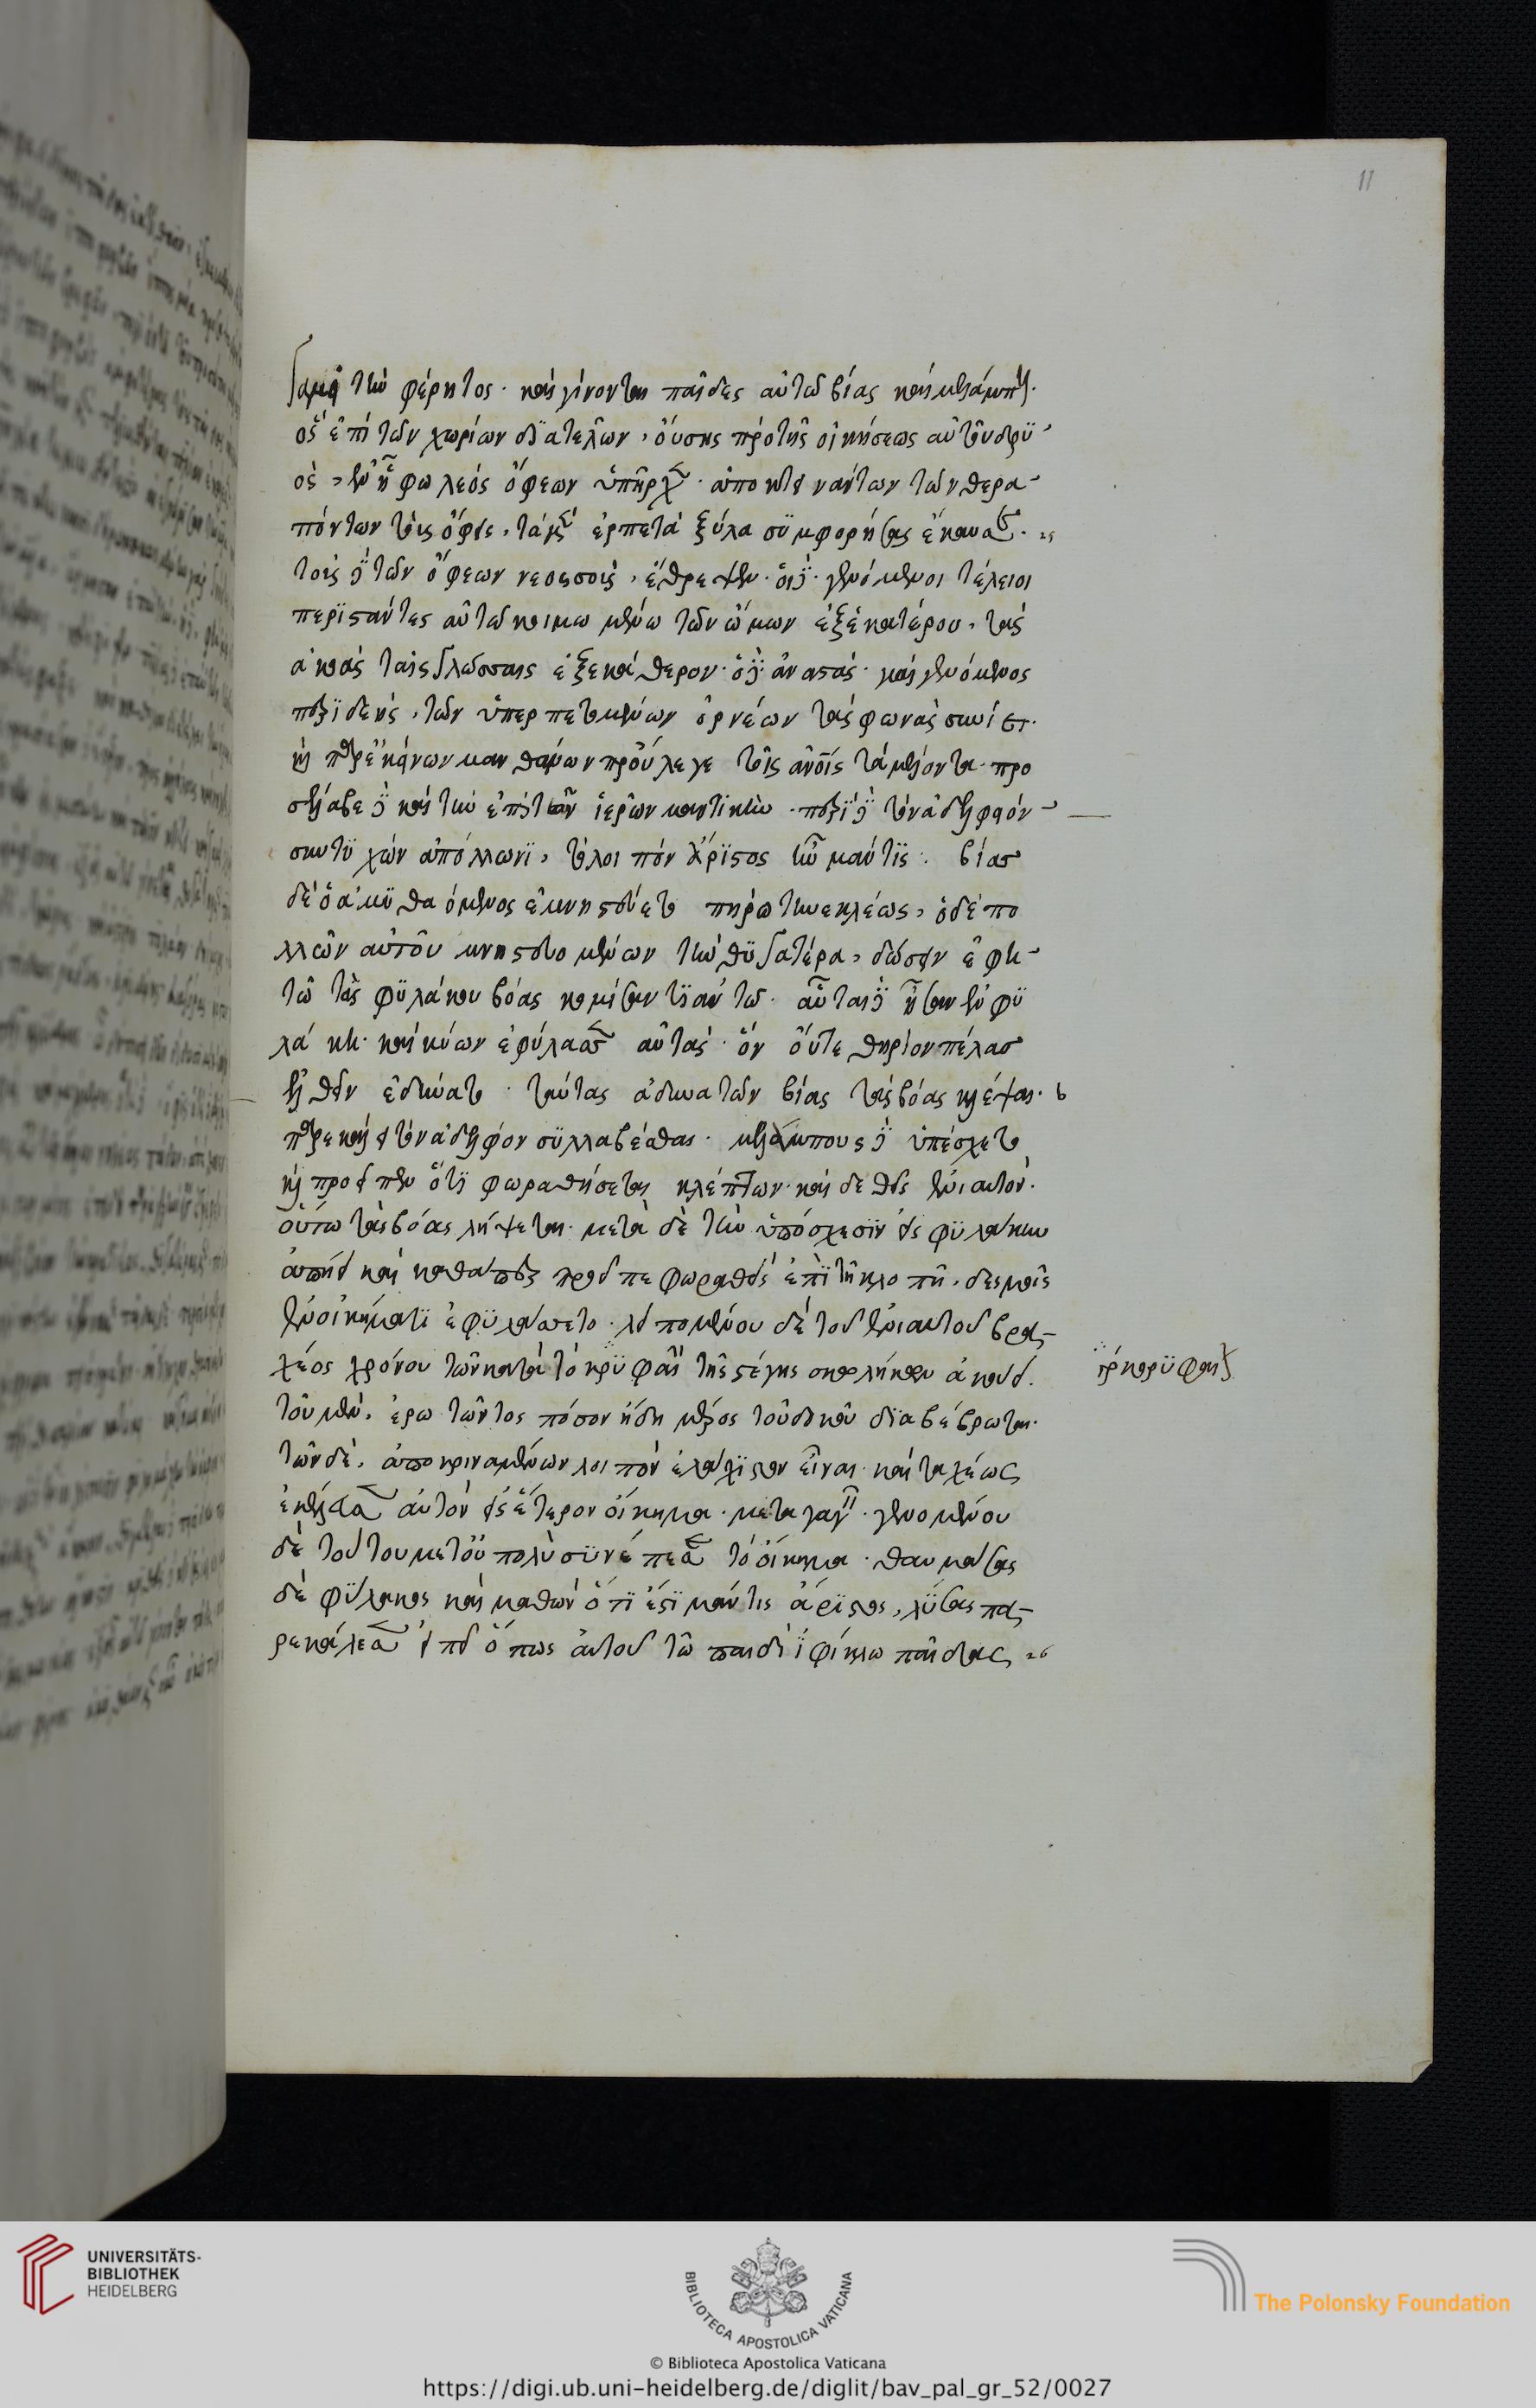 γαμεῖ τὴν φέρητος· καὶ γίνονται παῖδες αὐτῶ βίας καὶ μελάμπους·
ὃς ἐπὶ τῶν χωρίων διατελῶν, οὔσης πρὸ τῆς οἰκήσεως αὐτοῦ δρϋ
ὸς, ἐν ᾗ φωλεός ὄφεων ὑπῆρχεν· ἀποκτεινάντων τῶν θερα
πόντων τοὺς ὄφεις, τὰ μὲν ἑρπετὰ ξύλα σϋμφορήσας ἔκαυσε·
τοὺς δὲ τῶν ὄφεων νεοσσοὺς, ἔθρεψεν· οἱ δὲ γενόμενοι τέλειοι
περϊστάντες αὐτῶ κοιμωμένω τῶν ὤμων ἐξ ἑκατέρου, τὰς
ἀκοὰς ταῖς γλώσσαις ἐξεκάθερον· ὁ δὲ ἀναστὰς· καὶ γενόμενος
περϊδεὴς, τῶν ὑπερπετομένων ὀρνέων τὰς φωνὰς συνίει·
καὶ παρ' ἐκείνων μανθάνων προὔλεγε τοῖς ἀνοῖς τὰ μέλλοντα· προ
σέλαβε δὲ καὶ τὴν ἐπὶ τῶν ἱερῶν μαντϊκὴν· περϊ δὲ τὸν ἀλφειὸν
συντϋχὼν ἀπόλλωνϊ, τὸ λοιπὸν ἄρϊστος ἦν μάντϊς· βίας
δὲ ὁ ἀμϋθαόμενος ἐμνηστεύετο πηρὼ τὴν νηλέως, ὁ δὲ πο
λλῶν αὐτοῦ μνηστευομένων τὴν θϋγατέρα, δώσειν ἔφη
τῶ τὰς φϋλάκου βόας κομίσαντϊ αὐτῶ· αὗται δὲ ἦσαν ἐν φϋ
λάκη· καὶ κύων ἐφύλασσεν αὐτὰς· ὃν οὔτε θηρίον πέλας
ἐλθεῖν ἐδύνατο· ταύτας ἀδυνατῶν βίας τὰς βόας κλέψαι·
παρεκάλει τὸν ἀδελφόν σϋλλαβέσθαι· μελάμπους δὲ ὑπέσχετο
καὶ προεῖπεν ὅτϊ φωραθήσεται κλέπτων· καὶ δεθεὶς ἐνιαυτὸν·
οὕτω τὰς βόας λήψεται· μετὰ δὲ τὴν ὑπόσχεσϊν εἰς φϋλάκην
ἀπήει καὶ καθάπερ προεῖπε φωραθεὶς ἐπϊ τῆ κλοπῆ, δεσμοῖς
ἐν οἰκήματϊ ἐφϋλάσσετο· λειπομένου δὲ τοῦ ἐνιαυτοῦ βρα
χέος χρόνου τῶν κατὰ τὸ κρϋφαῖ τῆς στέγης σκωλήκων ἀκούει·
τοῦ μὲν, ἐρωτῶντος πόσον ἤδη μέρος τοῦ δοκοῦ δϊαβέβρωται·
τῶν δὲ, ἀποκριναμένων λοιπὸν ἐλάχϊστον εἶναι· καὶ ταχέως
ἐκέλευσεν αὑτὸν εἰς ἕτερον οἴκημα· μεταγαγεῖν· γενομένου
δὲ τούτου μετ' οὐ πολὺ σϋνέπεσε τὸ οἴκημα· θαυμάσας
δὲ φϋλακος καὶ μαθὼν ὅτϊ ἐστϊ μάντις ἄρϊστος, λϋσας πα
ρεκάλεσεν εἰπεῖν ὅπως αὐτοῦ τῶ παιδὶ ἰφίκλω παῖδες
11
UNIVERSITÄTS-
BIBLIOTHEK
HEIDELBERG
BIBLIOTECA APOSTOLICA VATICANA
The Polonsky Foundation
© Biblioteca Apostolica Vaticana
https://digi.ub.uni-heidelberg.de/diglit/bav_pal_gr_52/0027